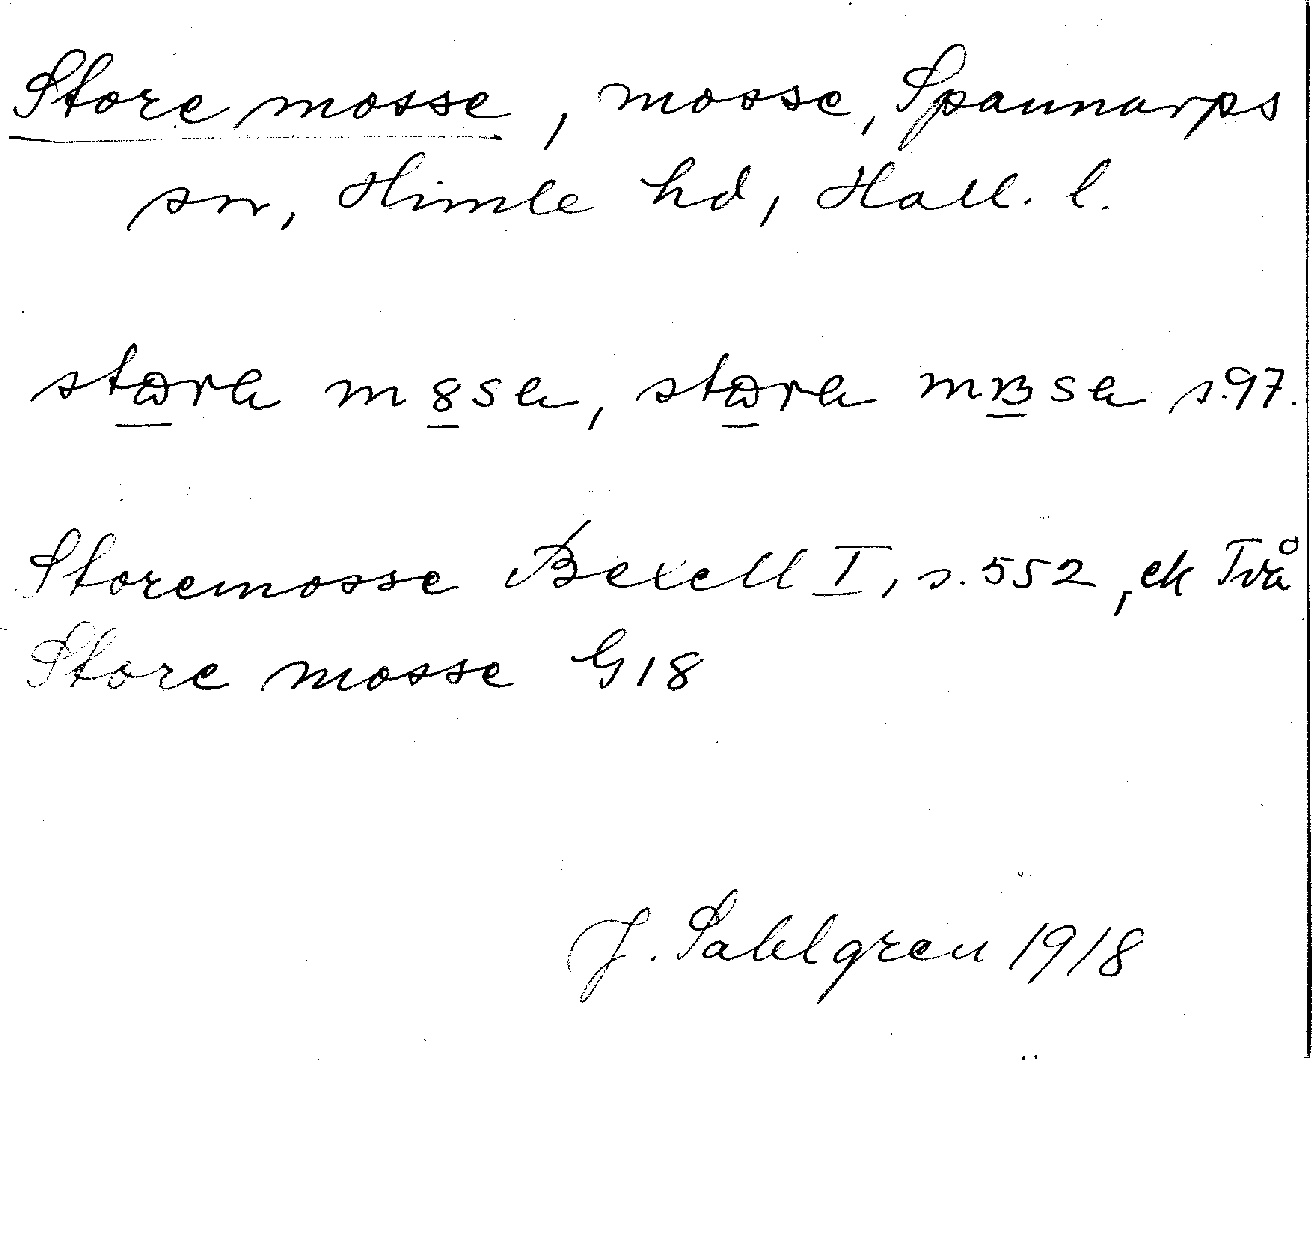 Store mosse, mosse, Spannarps
sn, Himle hd, Hall. l.
s. 97.
Storemosse Bexell I, s. 552, ek Två
Store mosse G18
J. Sahlgren 1918